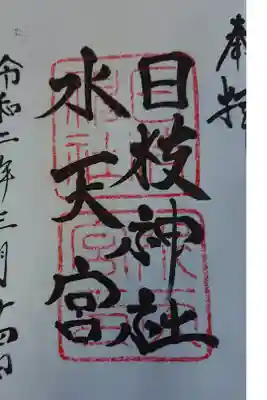 奉拝
日枝神社
水天宮
令和二年三月十四日